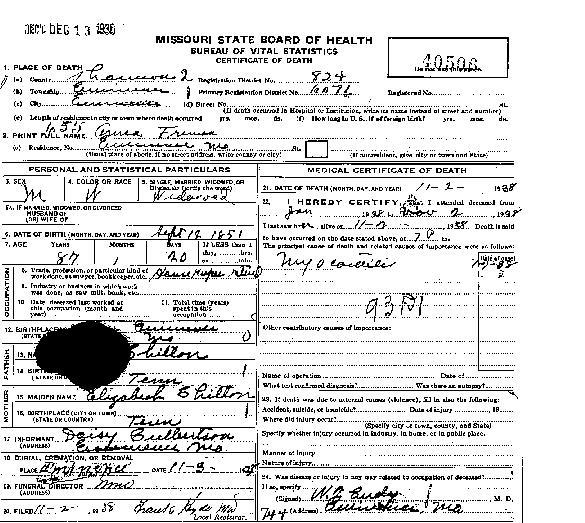 DEC'D DEC 13 1938
MISSOURI STATE BOARD OF HEALTH
BUREAU OF VITAL STATISTICS
CERTIFICATE OF DEATH
40506
1. PLACE OF DEATH
(a) County Shannon 2 Registration District No. 824
(b) Township Eminence Primary Registration District No. Registered No.
(c) City Eminence (d) Street No. St.
(If death occurred in Hospital or Institution, write its name instead of street and number)
(e) Length of residence in city or town where death occurred yrs. mos. ds. (f) How long in U. S., if of foreign birth? yrs. mos. ds.
2. PRINT FULL NAME
(a) Residence, No. Eminence Mo St.
(Usual place of abode, if no street address, write county or city) (If nonresident, give city or town and State)
PERSONAL AND STATISTICAL PARTICULARS
3. SEX
M
4. COLOR OR RACE
W
5. SINGLE, MARRIED, WIDOWED OR DIVORCED (write the word)
Widowed
5A. IF MARRIED, WIDOWED, OR DIVORCED
HUSBAND OF
(OR) WIFE OF
6. DATE OF BIRTH (MONTH, DAY, AND YEAR) Sept 12 1851
7. AGE YEARS MONTHS DAYS If LESS than 1
87 1 20 day, hrs.
or min.
OCCUPATION
8. Trade, profession, or particular kind of work done, as sawyer, bookkeeper, etc. Housekeeper retired
9. Industry or business in which work was done, as saw mill, bank, etc.
10. Date deceased last worked at this occupation (month and year)
11. Total time (years) spent in this occupation
12. BIRTHPLACE Eminence
Mo 0
FATHER
13. Shilton
14.
Tenn
MOTHER
15. MAIDEN NAME Elizabeth Shilton
16. BIRTHPLACE (CITY OR TOWN)
(STATE OR COUNTRY) Tenn
17. INFORMANT Daisy Culbertson
(ADDRESS) Eminence Mo
18. BURIAL, CREMATION, OR REMOVAL
PLACE DATE 11-3- 1938
19. FUNERAL DIRECTOR None
(ADDRESS)
20. FILED 11-2- 1938 Frank Hyde MD
Local Registrar.
MEDICAL CERTIFICATE OF DEATH
21. DATE OF DEATH (MONTH, DAY, AND YEAR) 11-2- 1938
22. I HEREBY CERTIFY, That I attended deceased from
Jan 1938, to Nov 2, 1938
I last saw h alive on 11-2 1938 Death is said
to have occurred on the date stated above, at
The principal cause of death and related causes of importance were as follows:
Date of onset
Myocarditis
Other contributory causes of importance:
Name of operation Date of
What test confirmed diagnosis? Was there an autopsy?
23. If death was due to external causes (violence), fill in also the following:
Accident, suicide, or homicide? Date of injury 19
Where did injury occur?
(Specify city or town, county, and State)
Specify whether injury occurred in industry, in home, or in public place.
Manner of injury
Nature of injury
24. Was disease or injury in any way related to occupation of deceased?
If so, specify
(Signed) M. D.
(Address) Eminence Mo